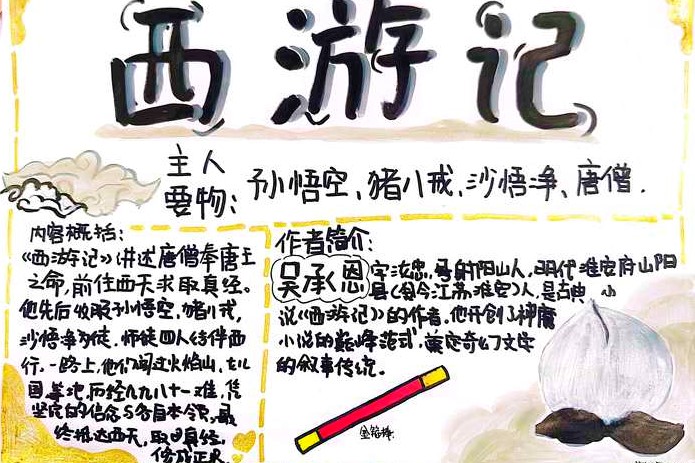 西游记
主人
要物：孙悟空、猪八戒、沙悟净、唐僧．
内容概括：
《西游记》讲述唐僧奉唐王
之命，前往西天求取真经。
他先后收服孙悟空、猪八戒，
沙悟净为徒，师徒四人结伴西
行，一路上，他们闯过火焰山，女儿
国等地，历经九九八十一难，凭
坚定的信念与各自本领，最
终抵达西天，取得真经，
修成正果
作者简介：
吴承恩字汝忠，号射阳山人，明代淮安府山阳
县（今江苏淮安）人，是古典小
说《西游记》的作者，他开创了神魔
小说的巅峰范式，奠定奇幻文学
的叙事传统。
金箍棒